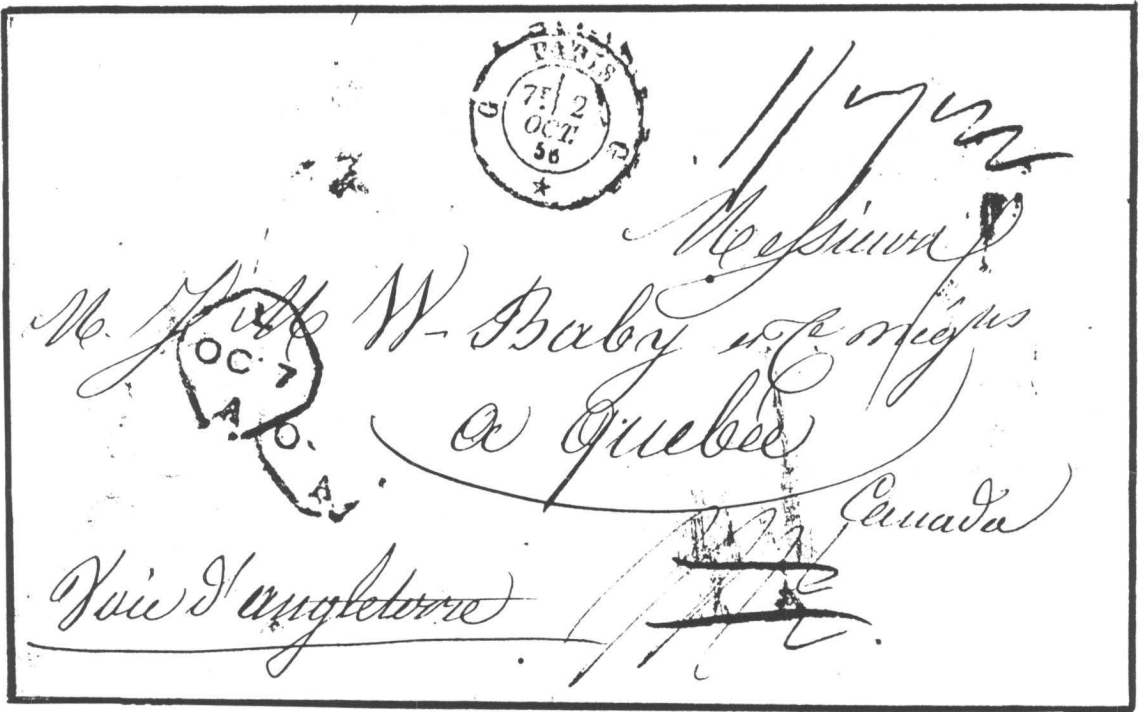 PARIS
7E 2
OCT.
56
Messieurs
M. W. Baby et Ce négts
OC 7
A.
a Quebec
O.
A
Canada
Voie d'angleterre